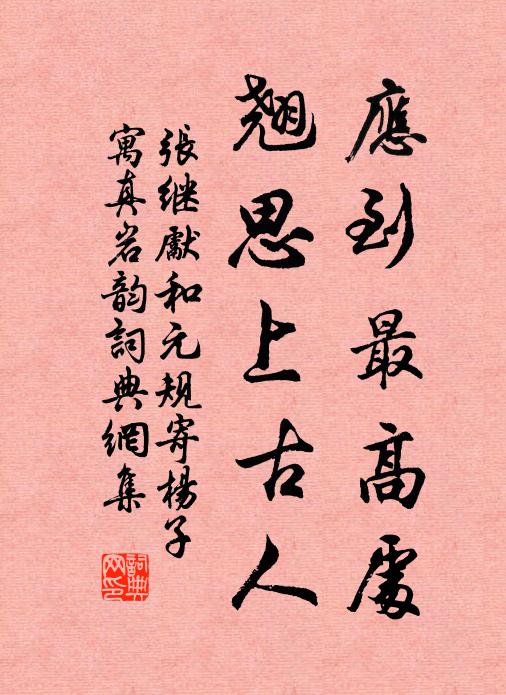 應到最高處
翹思上古人
張継獻和元規寄楊子
寓真岩韵詞典網集
詞典
网印